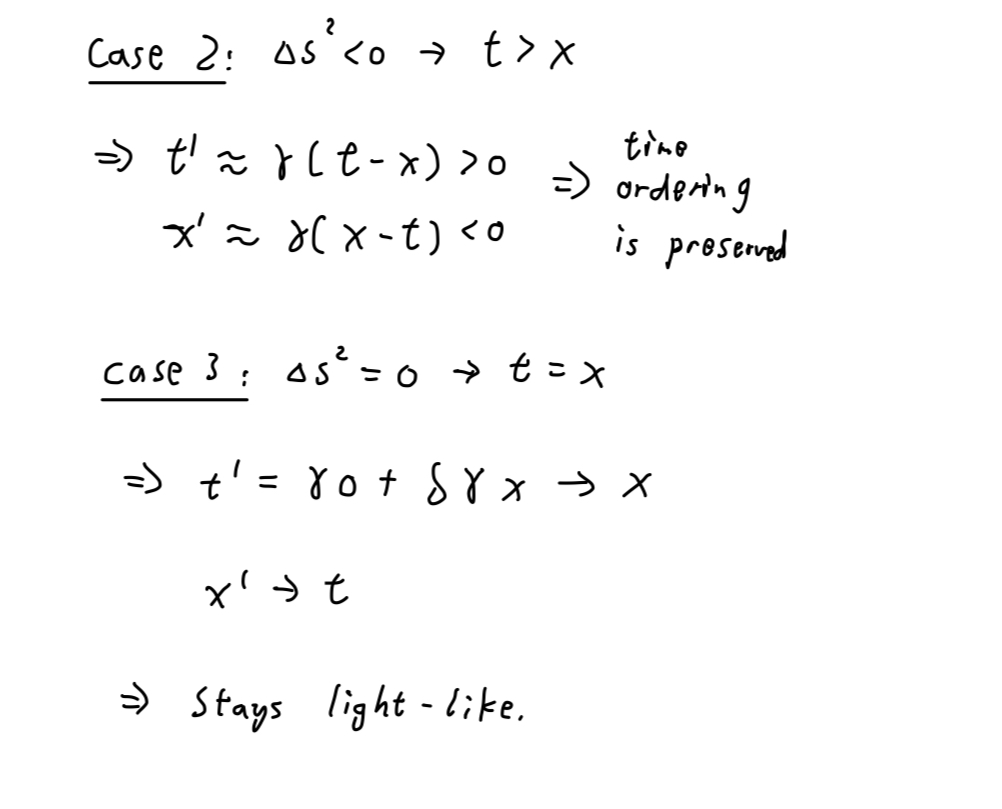 Case 2: Δs² < 0 → t > x
⇒ t' ≈ γ(t - x) > 0 ⇒ time ordering is preserved
x' ≈ γ(x - t) < 0
case 3: Δs² = 0 → t = x
⇒ t' = γ0 + δγx → x
x' → t
⇒ Stays light-like.